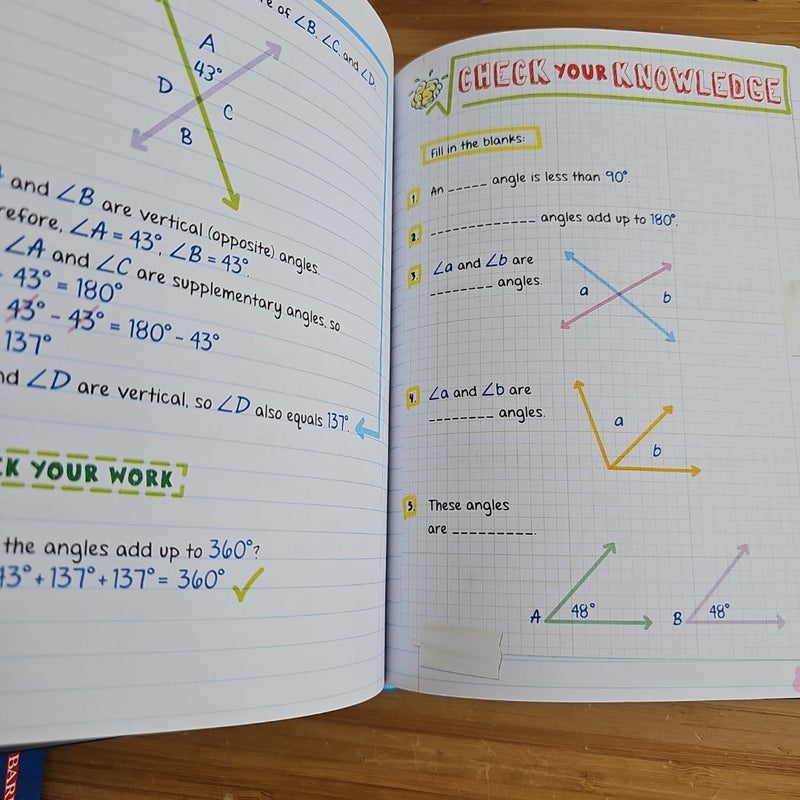 of ∠B, ∠C, and ∠D.
A
43°
D
C
B
and ∠B are vertical (opposite) angles.
∠A = 43°, ∠B = 43°.
∠A and ∠C are supplementary angles, so
43° = 180°
43° - 43° = 180° - 43°
137°
∠D are vertical, so ∠D also equals 137°.
YOUR WORK
the angles add up to 360°?
43° + 137° + 137° = 360°
CHECK YOUR KNOWLEDGE
Fill in the blanks:
1. An _____ angle is less than 90°.
2. ____________ angles add up to 180°.
3. ∠a and ∠b are
________ angles.
a
b
4. ∠a and ∠b are
________ angles.
a
b
5. These angles
are __________.
A 48°
B 48°